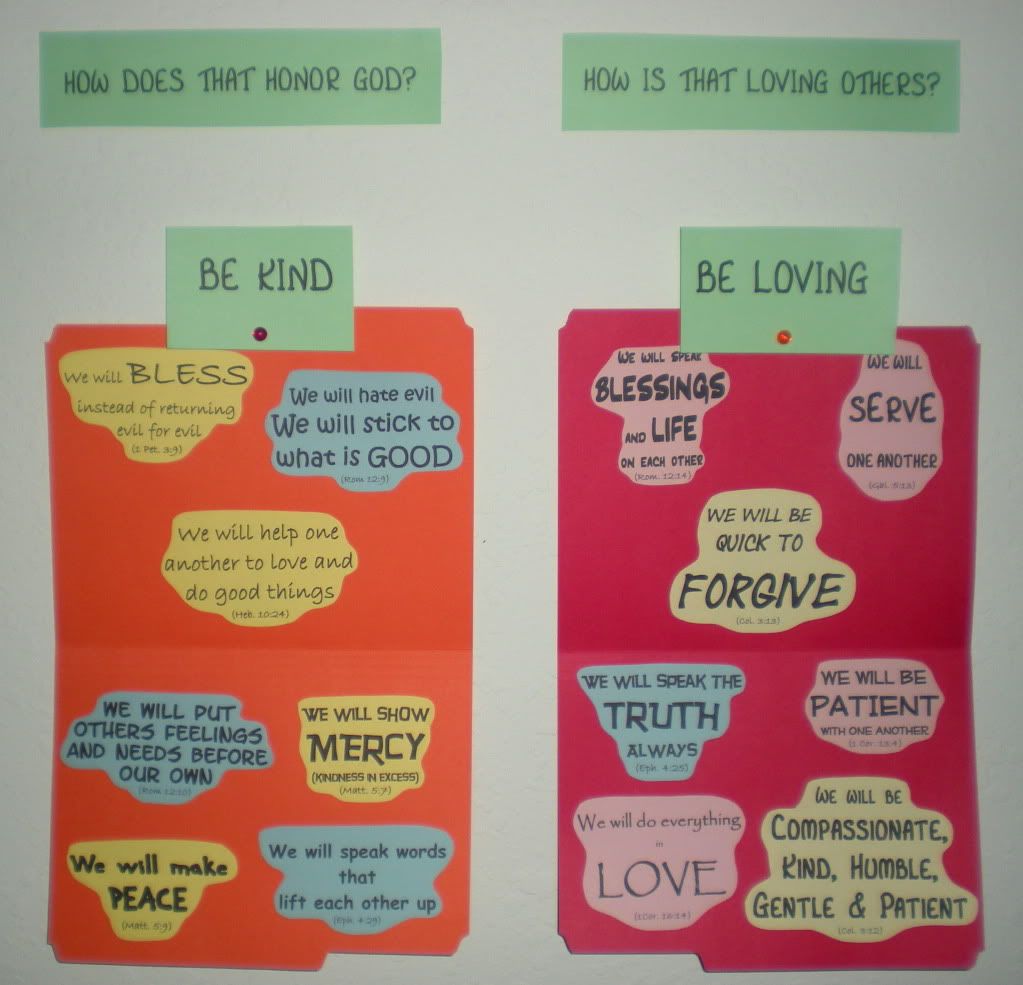 HOW DOES THAT HONOR GOD?
HOW IS THAT LOVING OTHERS?
BE KIND
We will BLESS
instead of returning
evil for evil
(1 Pet. 3:9)
We will hate evil
We will stick to
what is GOOD
(Rom 12:9)
We will help one
another to love and
do good things
(Heb. 10:24)
WE WILL PUT
OTHERS FEELINGS
AND NEEDS BEFORE
OUR OWN
(Rom 12:10)
WE WILL SHOW
MERCY
(KINDNESS IN EXCESS)
(Matt. 5:7)
We will make
PEACE
(Matt. 5:9)
We will speak words
that
lift each other up
(Eph. 4:29)
BE LOVING
WE WILL SPEAK
BLESSINGS
AND LIFE
ON EACH OTHER
(Rom. 12:14)
WE WILL
SERVE
ONE ANOTHER
(Gal. 5:13)
WE WILL BE
QUICK TO
FORGIVE
(Col. 3:13)
WE WILL SPEAK THE
TRUTH
ALWAYS
(Eph. 4:25)
WE WILL BE
PATIENT
WITH ONE ANOTHER
(1 Cor. 13:4)
We will do everything
in
LOVE
(1Cor. 16:14)
WE WILL BE
COMPASSIONATE,
KIND, HUMBLE,
GENTLE & PATIENT
(Col. 3:12)